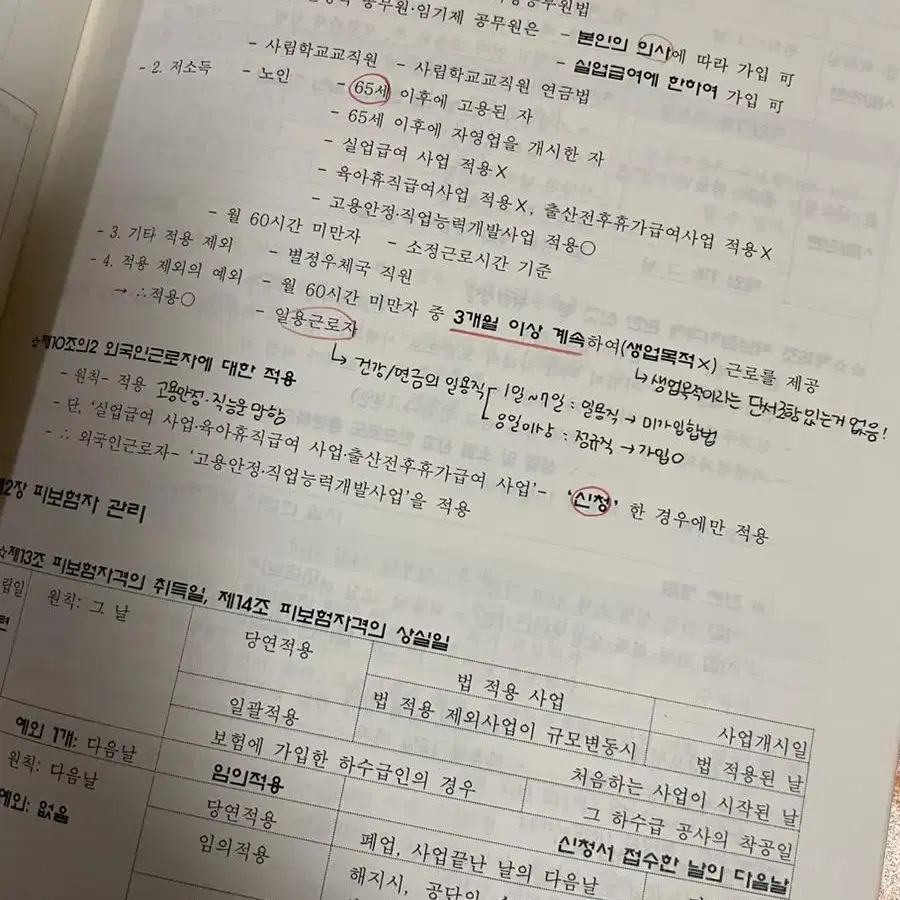 공무원법
공무원·임기제 공무원은 - 본인의 의사에 따라 가입 可
- 실업급여에 한하여 가입 可
- 사립학교교직원 - 사립학교교직원 연금법
- 2. 저소득 - 노인 - 65세 이후에 고용된 자
- 65세 이후에 자영업을 개시한 자
- 실업급여 사업 적용X
- 육아휴직급여사업 적용X, 출산전후휴가급여사업 적용X
- 고용안정·직업능력개발사업 적용○
- 월 60시간 미만자 - 소정근로시간 기준
- 3. 기타 적용 제외 - 별정우체국 직원
- 4. 적용 제외의 예외 - 월 60시간 미만자 중 3개월 이상 계속하여(생업목적×) 근로를 제공
→ ∴적용○ - 일용근로자
↳ 생업목적이라는 단서조항 있는거 없음!
↳ 건강/연금의 일용직 - 1일~7일 : 일용직 → 미가입합법
8일이상 : 정규직 → 가입○
☆제10조의2 외국인근로자에 대한 적용
- 원칙- 적용 고용안정·직능을 말함
- 단, '실업급여 사업·육아휴직급여 사업·출산전후휴가급여 사업'- '신청' 한 경우에만 적용
- ∴ 외국인근로자- '고용안정·직업능력개발사업'을 적용
제2장 피보험자 관리
☆제13조 피보험자격의 취득일, 제14조 피보험자격의 상실일
립일
원칙: 그 날
당연적용
법 적용 사업
사업개시일
법 적용 제외사업이 규모변동시
법 적용된 날
일괄적용
처음하는 사업이 시작된 날
보험에 가입한 하수급인의 경우
그 하수급 공사의 착공일
예외 1개: 다음날
임의적용
신청서 접수한 날의 다음날
원칙: 다음날
당연적용
폐업, 사업끝난 날의 다음날
예외: 없음
임의적용
해지시, 공단이